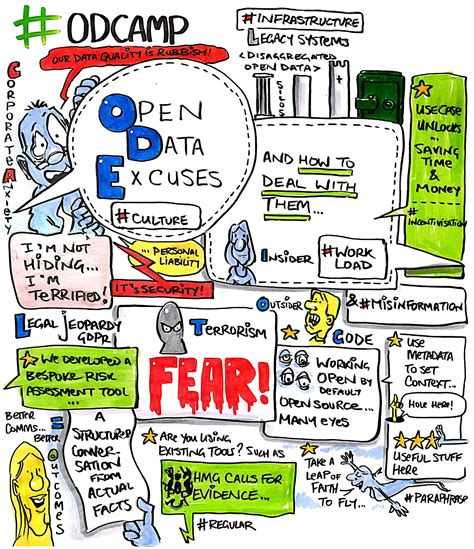 #ODCAMP
OUR DATA QUALITY IS RUBBISH!
CORPORATE ANXIETY
OPEN
DATA
EXCUSES
#CULTURE
#INFRASTRUCTURE
LEGACY SYSTEMS
<DISAGGREGATED
OPEN DATA>
SILOS
AND HOW TO
DEAL WITH
THEM...
INSIDER
#WORK
LOAD
USECASE
UNLOCKS...
SAVING
TIME
& MONEY
#INCENTIVISATION
I'M NOT
HIDING...
I'M
TERRIFIED!
...PERSONAL
LIABILITY
IT'S SECURITY!
LEGAL JEOPARDY
GDPR
WE DEVELOPED A
BESPOKE RISK
ASSESSMENT TOOL...
TERRORISM
FEAR!
OUTSIDER
& #MISINFORMATION
CODE
WORKING
OPEN BY
DEFAULT
OPEN SOURCE...
MANY EYES
USE
METADATA
TO SET
CONTEXT...
HOLE HERE!
USEFUL STUFF
HERE
BETTER
COMMS...
BETTER
OUTCOMES
A
STRUCTURED
CONVER-
SATION
FROM
ACTUAL
FACTS
ARE YOU USING
EXISTING TOOLS? SUCH AS
HMG CALLS FOR
EVIDENCE...
#REGULAR
TAKE A
LEAP OF
FAITH
TO FLY...
#PARAPHRASE